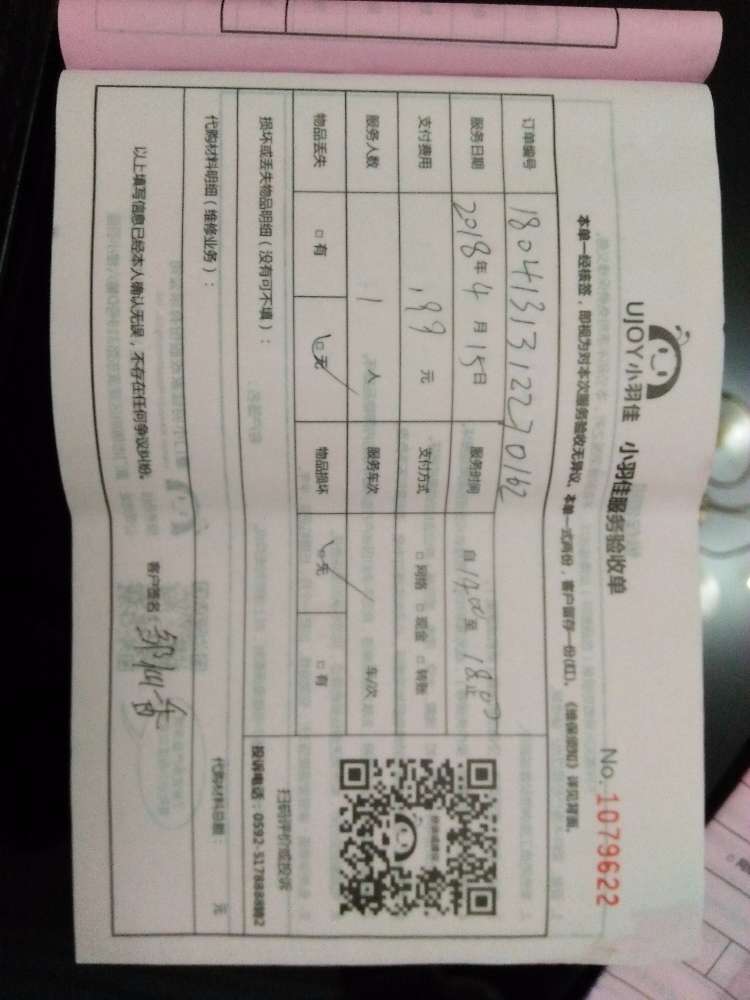 UJOY小羽佳 小羽佳服务验收单 No. 1079622
本单一经核签，即视为对本次服务验收无异议，本单一式两份，客户留存一份(红)。《维保须知》详见背面。
订单编号 18041313122270162
服务日期 2018年4月15日 服务时间 自14:00至18:00止
支付费用 199元 支付方式 □网络 □现金 □转账
服务人数 1人 服务车次 车/次
物品丢失 □有 □无 物品损坏 □无 □有
损坏或丢失物品明细（没有可不填）：
扫码评价或投诉
投诉电话：0592-5178888转2
代购材料明细（维修业务）： 代购材料总额： 元
以上填写信息已经本人确认无误，不存在任何争议纠纷。 客户签名：